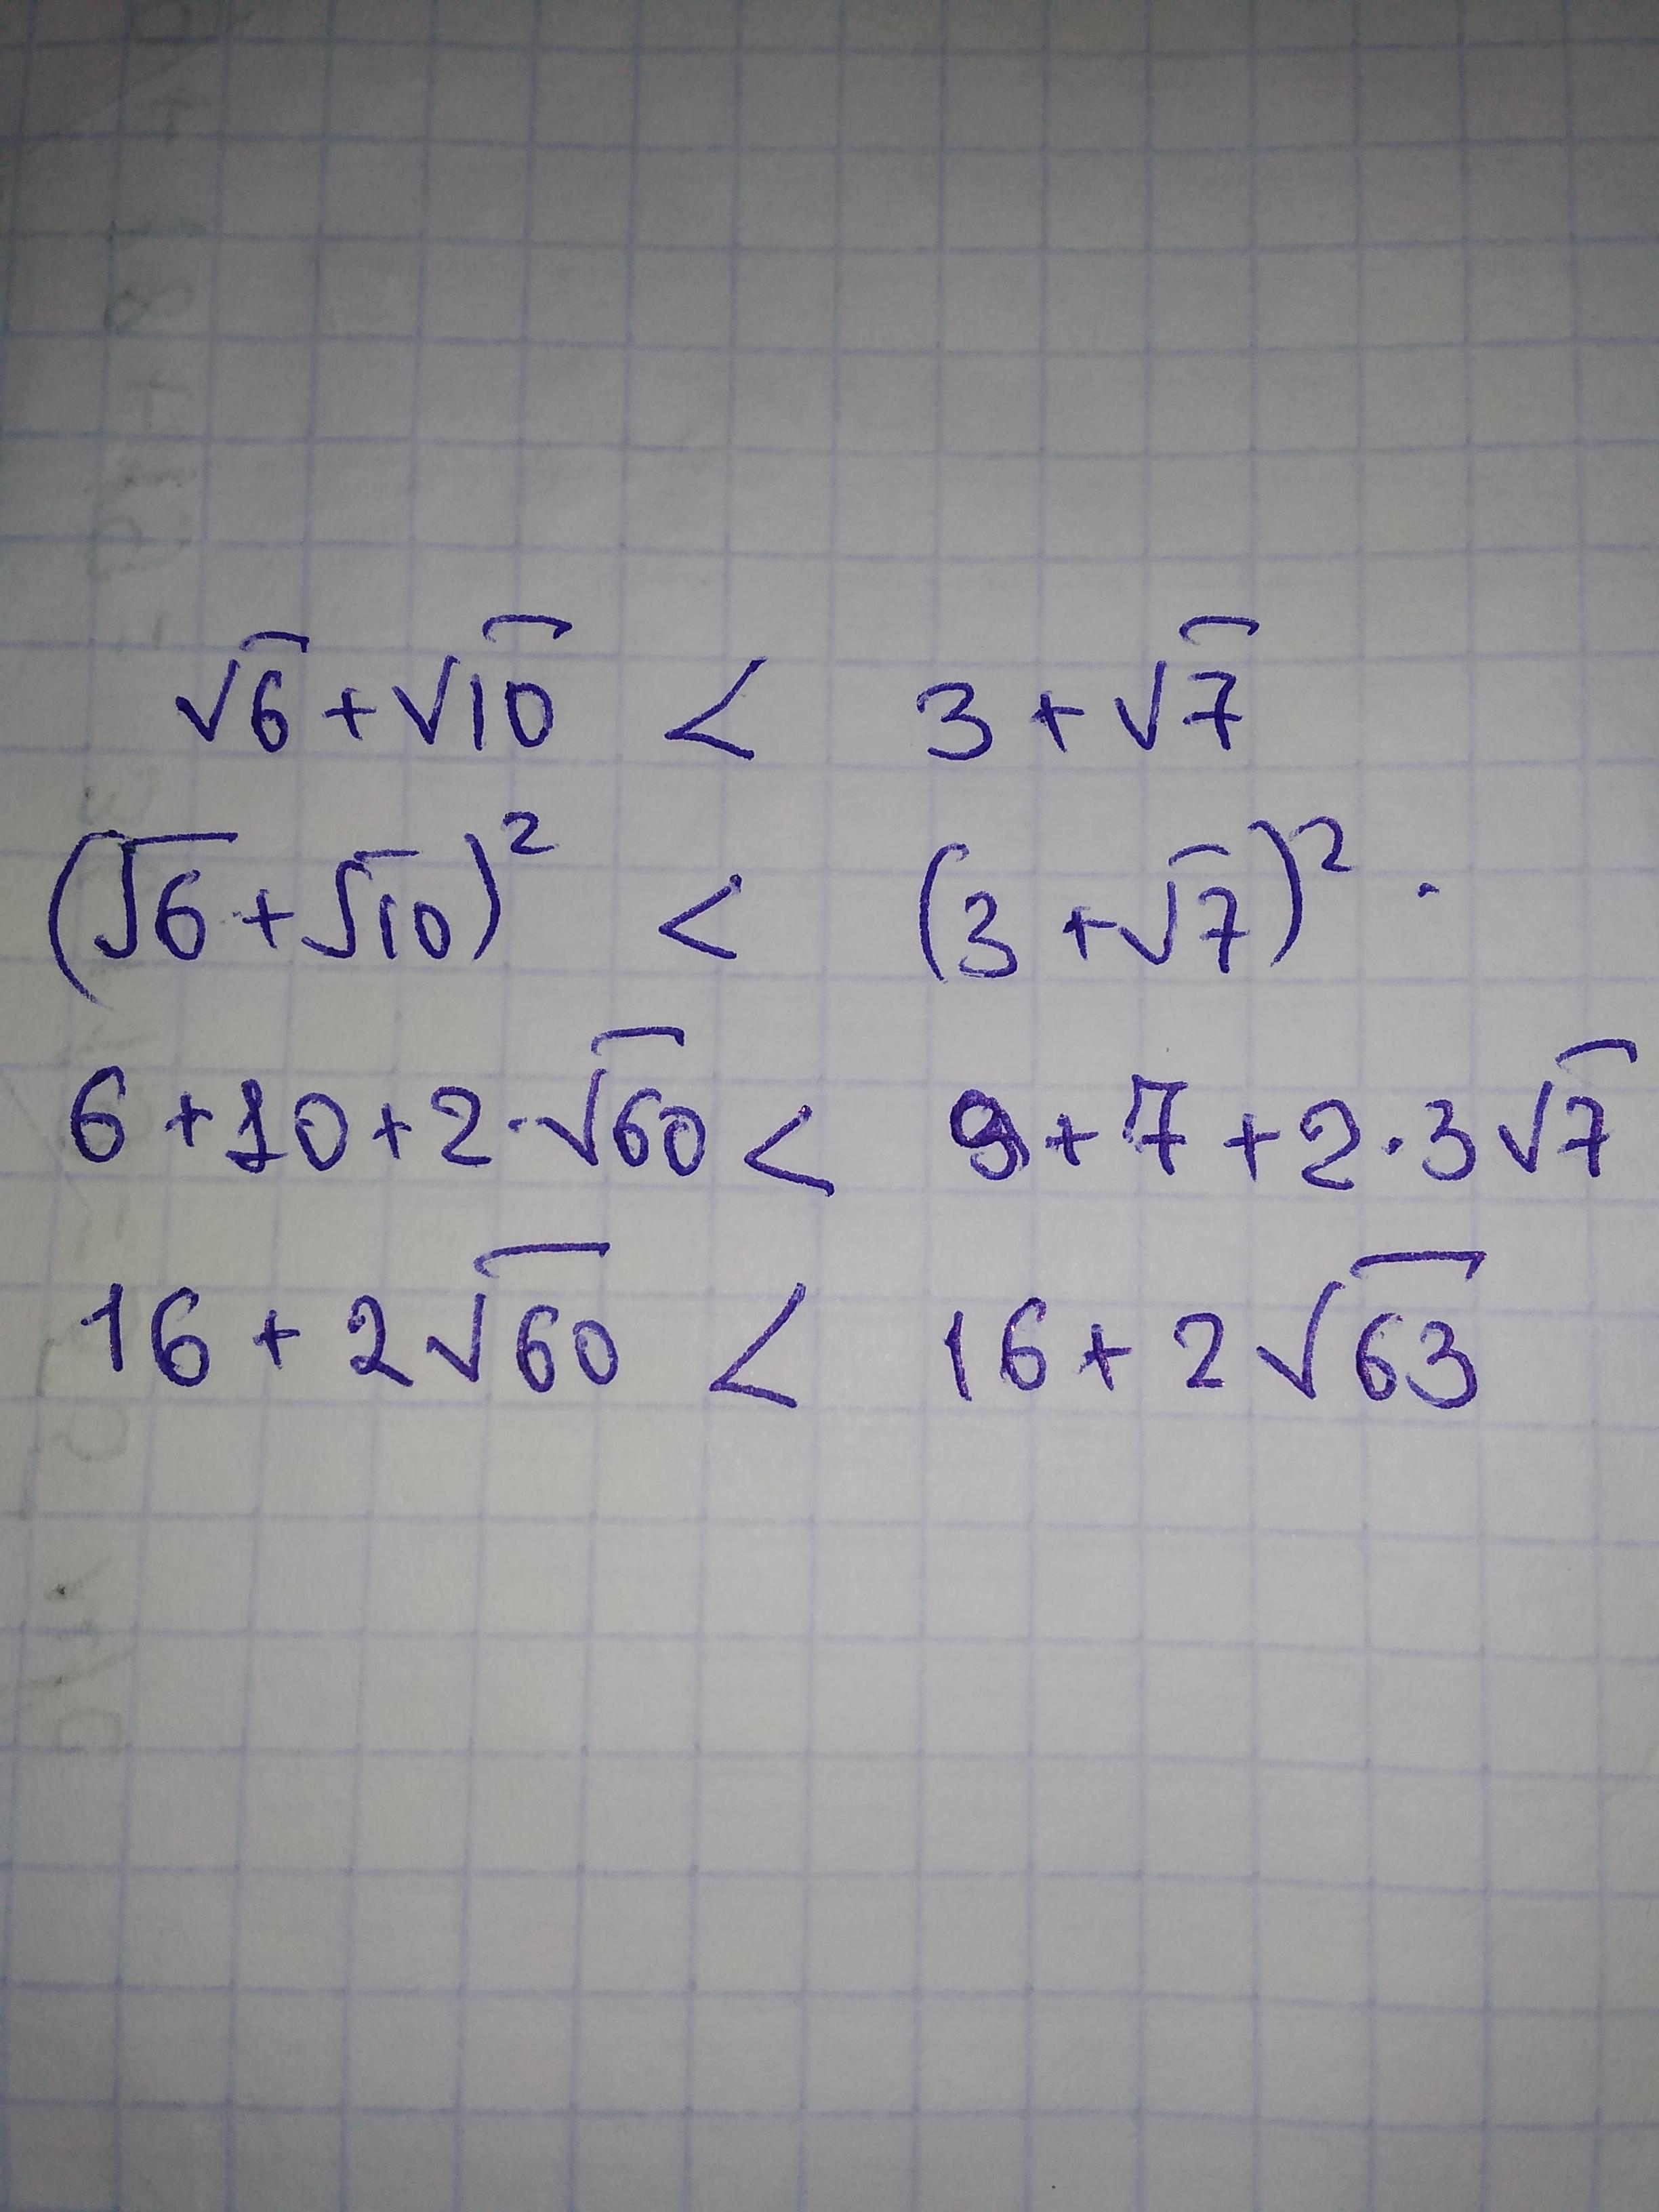 √6 + √10 < 3 + √7
(√6 + √10)² < (3 + √7)² ·
6 + 10 + 2·√60 < 9 + 7 + 2·3√7
16 + 2√60 < 16 + 2√63